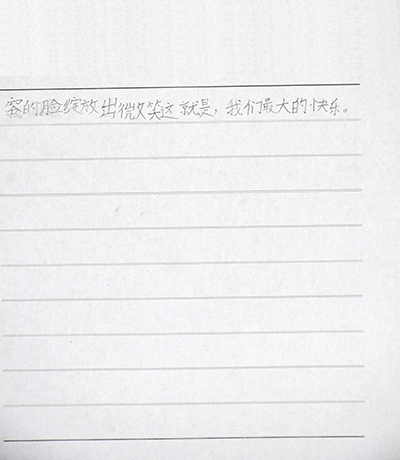 容的脸绽放出微笑这就是，我们最大的快乐。